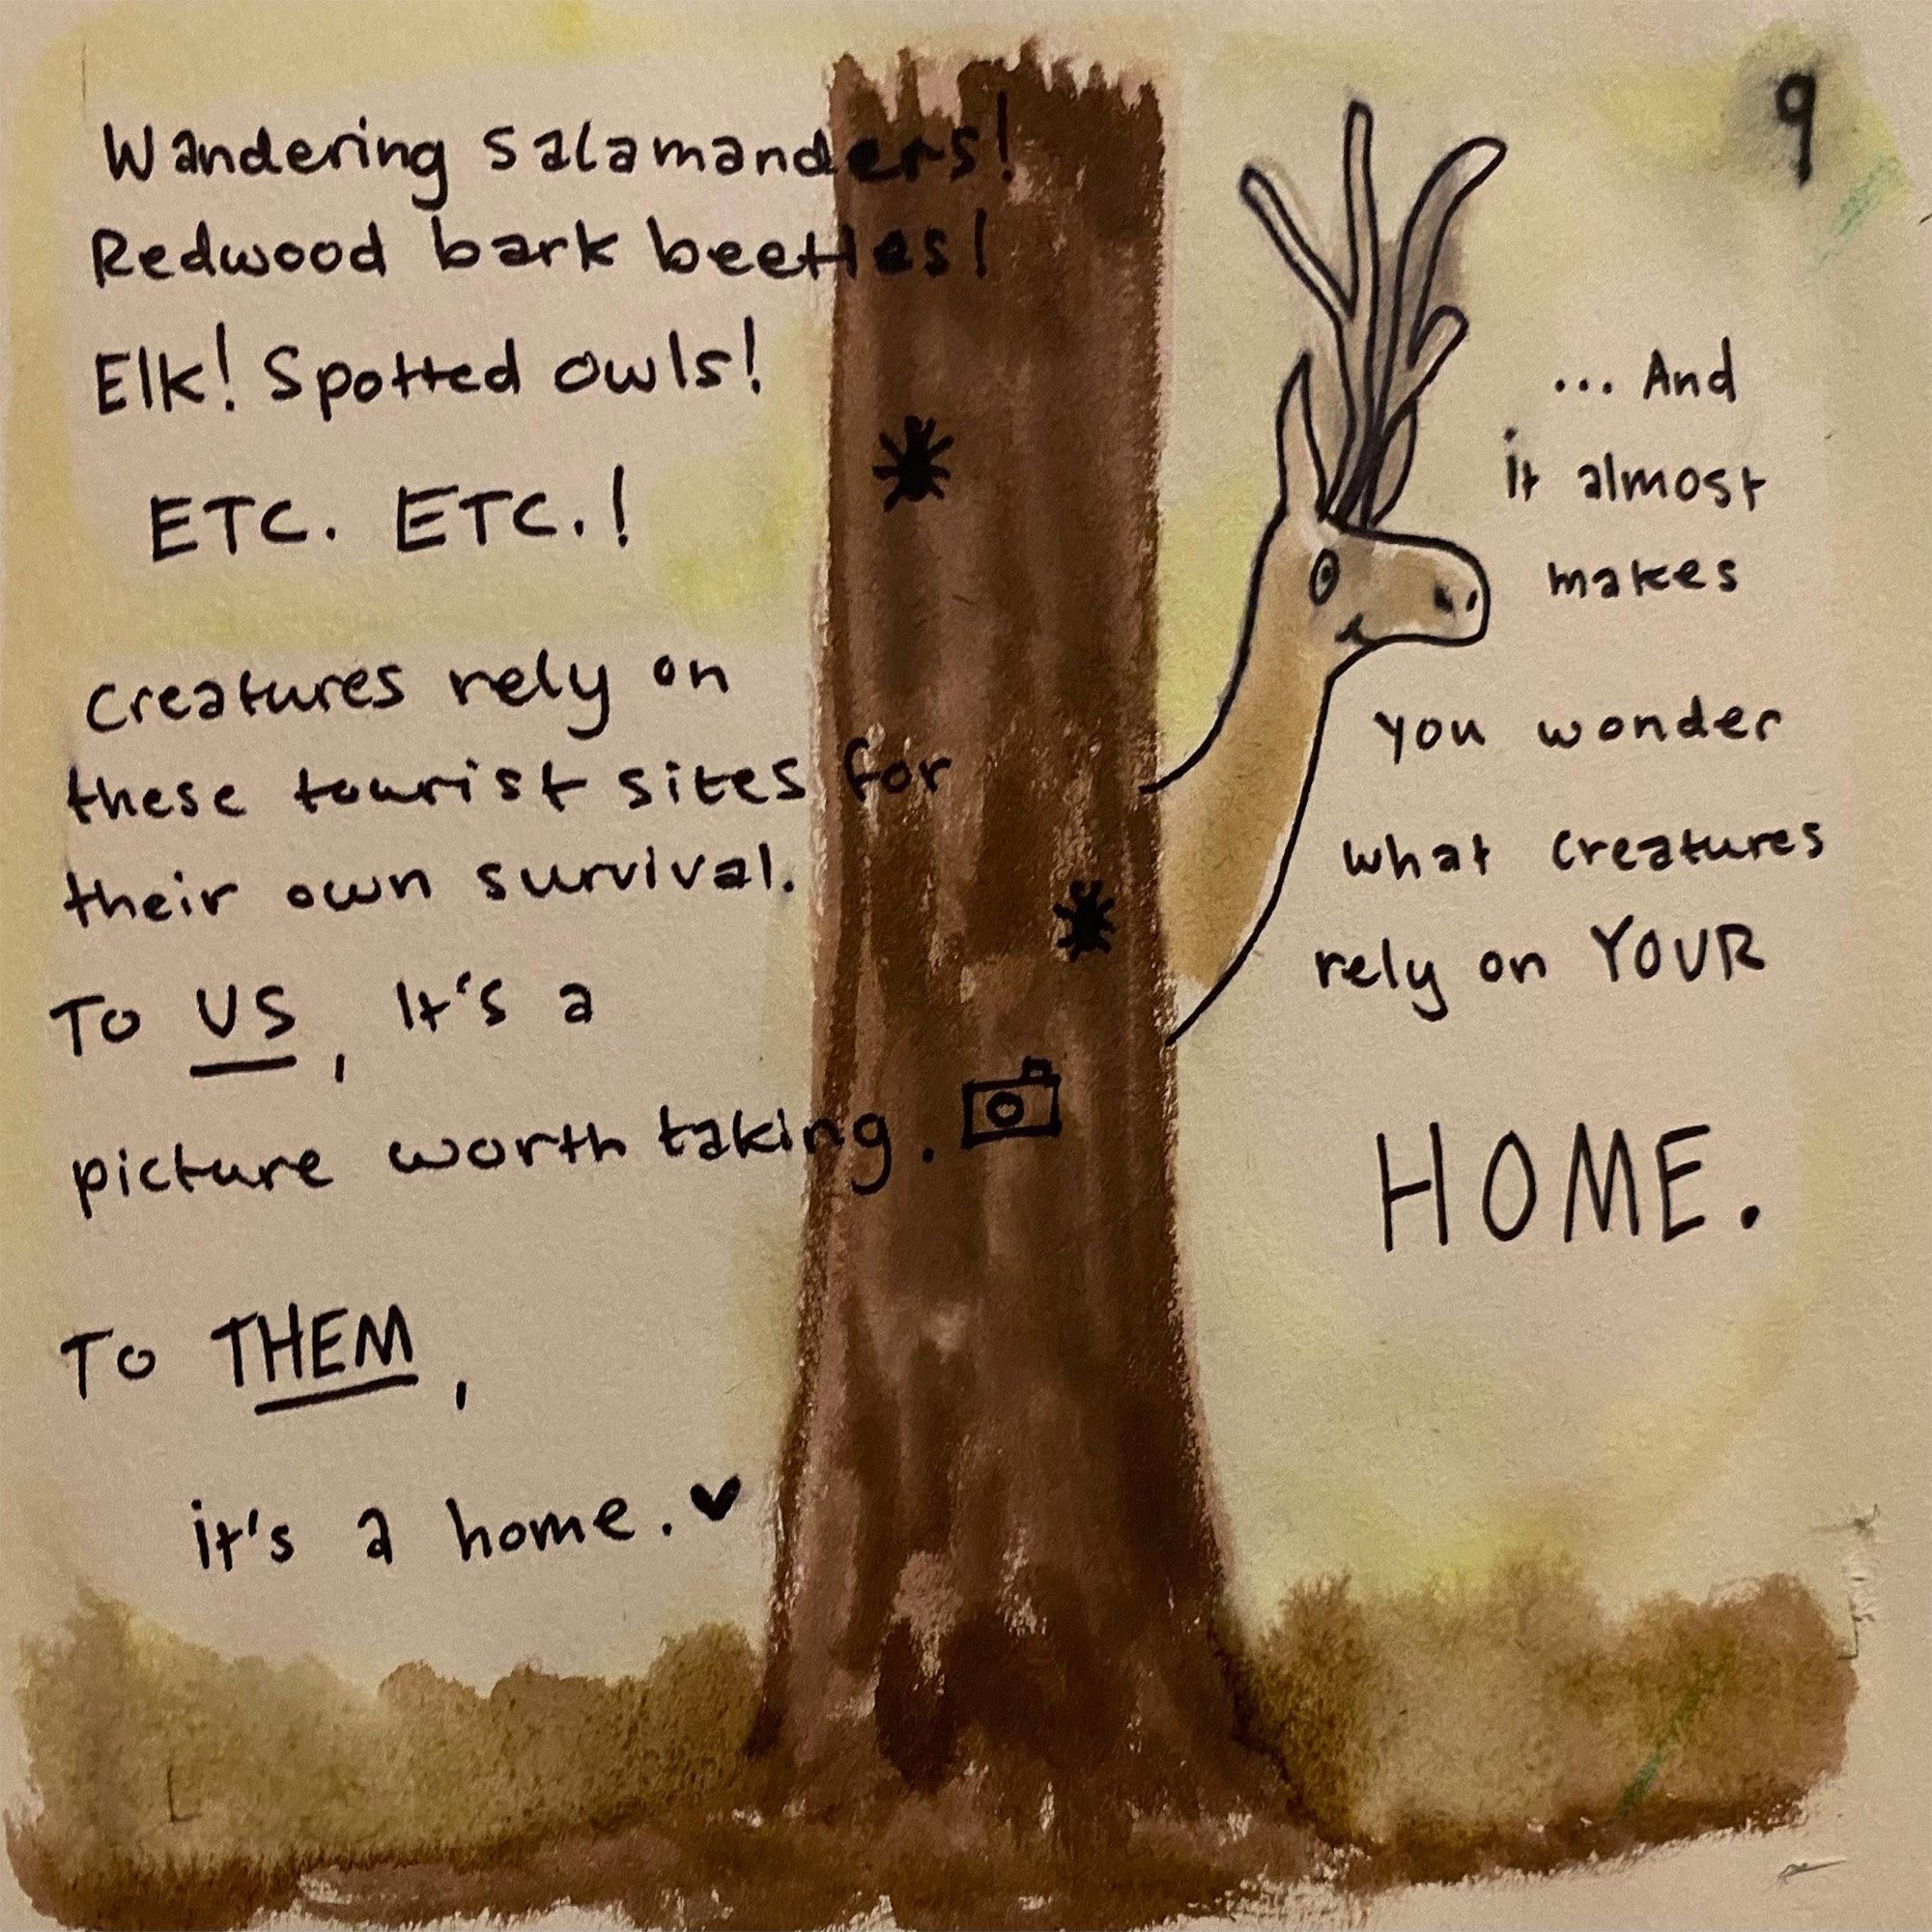 9
Wandering salamanders!
Redwood bark beetles!
Elk! Spotted owls!
ETC. ETC.!
Creatures rely on
these tourist sites for
their own survival.
To US, It's a
picture worth taking.
To THEM,
it's a home.
... And
it almost
makes
you wonder
what creatures
rely on YOUR
HOME.